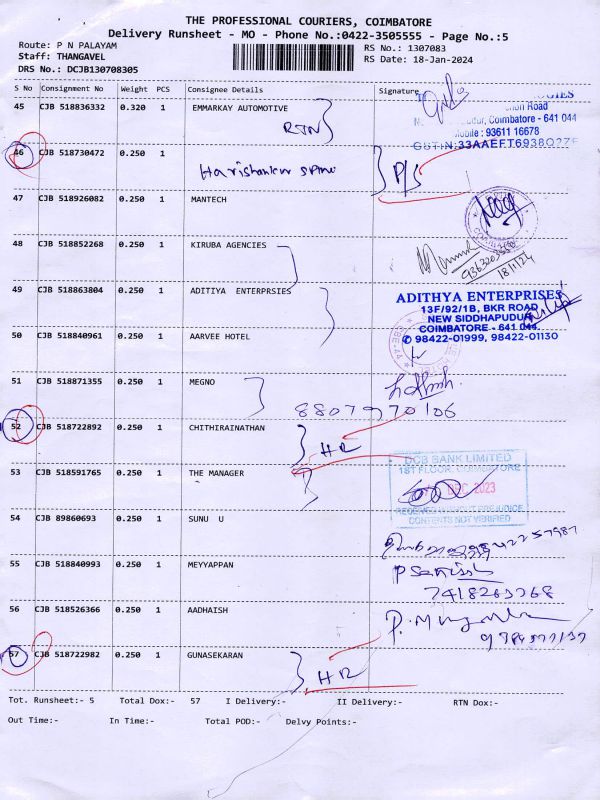 THE PROFESSIONAL COURIERS, COIMBATORE
Delivery Runsheet - MO - Phone No.:0422-3505555 - Page No.:5
Route: P N PALAYAM RS No.: 1307083
Staff: THANGAVEL RS Date: 18-Jan-2024
DRS No.: DCJB130708305
S No Consignment No Weight PCS Consignee Details Signature
45 CJB 518836332 0.320 1 EMMARKAY AUTOMOTIVE
RTN
Road
Coimbatore - 641 044
Mobile : 93611 16678
46 CJB 518730472 0.250 1
P/S
47 CJB 518926082 0.250 1 MANTECH
48 CJB 518852268 0.250 1 KIRUBA AGENCIES
18/1/24
49 CJB 518863804 0.250 1 ADITIYA ENTERPRSIES
ADITHYA ENTERPRISES
13F/92/1B, BKR ROAD
NEW SIDDHAPUDUR
COIMBATORE - 641 044.
✆ 98422-01999, 98422-01130
50 CJB 518840961 0.250 1 AARVEE HOTEL
51 CJB 518871355 0.250 1 MEGNO
8807970106
52 CJB 518722892 0.250 1 CHITHIRAINATHAN
HR
53 CJB 518591765 0.250 1 THE MANAGER
DCB BANK LIMITED
1ST FLOOR, COIMBATORE
DEC 2023
RECEIVED WITHOUT PREJUDICE
CONTENTS NOT VERIFIED
54 CJB 89860693 0.250 1 SUNU U
55 CJB 518840993 0.250 1 MEYYAPPAN
7418263768
56 CJB 518526366 0.250 1 AADHAISH
57 CJB 518722982 0.250 1 GUNASEKARAN
HR
Tot. Runsheet:- 5 Total Dox:- 57 I Delivery:- II Delivery:- RTN Dox:-
Out Time:- In Time:- Total POD:- Delvy Points:-